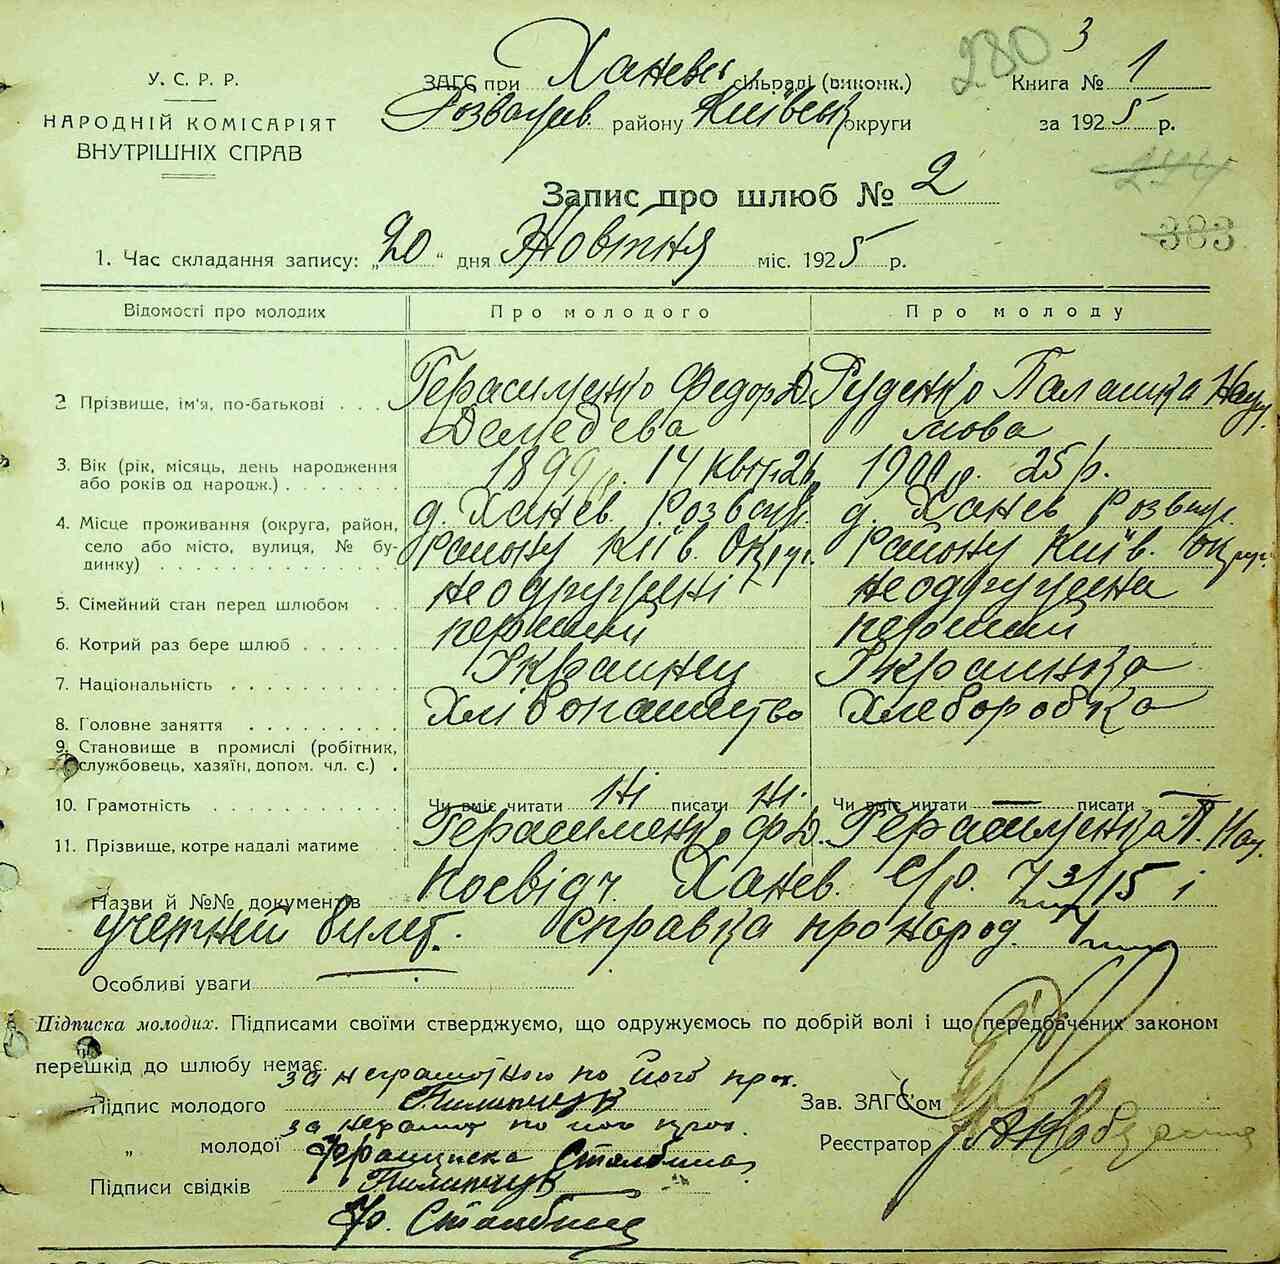 280 3
У.С.Р.Р. ЗАГС при Ханевс сільраді (виконк.) Книга № 1
НАРОДНІЙ КОМІСАРІЯТ Розважів. району Київськ округи за 1925 р.
ВНУТРІШНІХ СПРАВ
Запис про шлюб № 2
383
1. Час складання запису: „20“ дня Жовтня міс. 1925 р.
Відомості про молодих Про молодого Про молоду
2 Прізвище, ім'я, по-батькові Герасименко Федор Д. Руденко Палашка Нау
мова
3. Вік (рік, місяць, день народження 1899 р. 14 квіт. 26 1900 р. 25 р.
або років од народж.)
4. Місце проживання (округа, район, д. Ханев. Розваж. д. Ханев Розваж.
село або місто, вулиця, № бу- району Київ. Округ. району Київ. округ.
динку)
5. Сімейний стан перед шлюбом неодружені неодружена
6. Котрий раз бере шлюб перший перший
7. Національність Украинец Украинка
8. Головне заняття Хлібопашество Хлеборобка
9. Становище в промислі (робітник,
службовець, хазяїн, допом. чл. с.)
10. Грамотність Чи вміє читати Ні писати Ні. Чи вміє читати — писати —
11. Прізвище, котре надалі матиме Герасименко Ф. Д. Герасименко П. Нау.
Назви й №№ документів Посвідч. Ханев. С/р. 3/15 і
учетний билет. Справка про народ.
Особливі уваги —
Підписка молодих. Підписами своїми стверджуємо, що одружуємось по добрій волі і що передбачених законом
перешкід до шлюбу немає.
за неграмотного по його прох.
Підпис молодого Пилипчук Зав. ЗАГС'ом
за неграмот по його прох.
„ молодої Франциска Реєстратор
Підписи свідків Пилипчук
Фр.